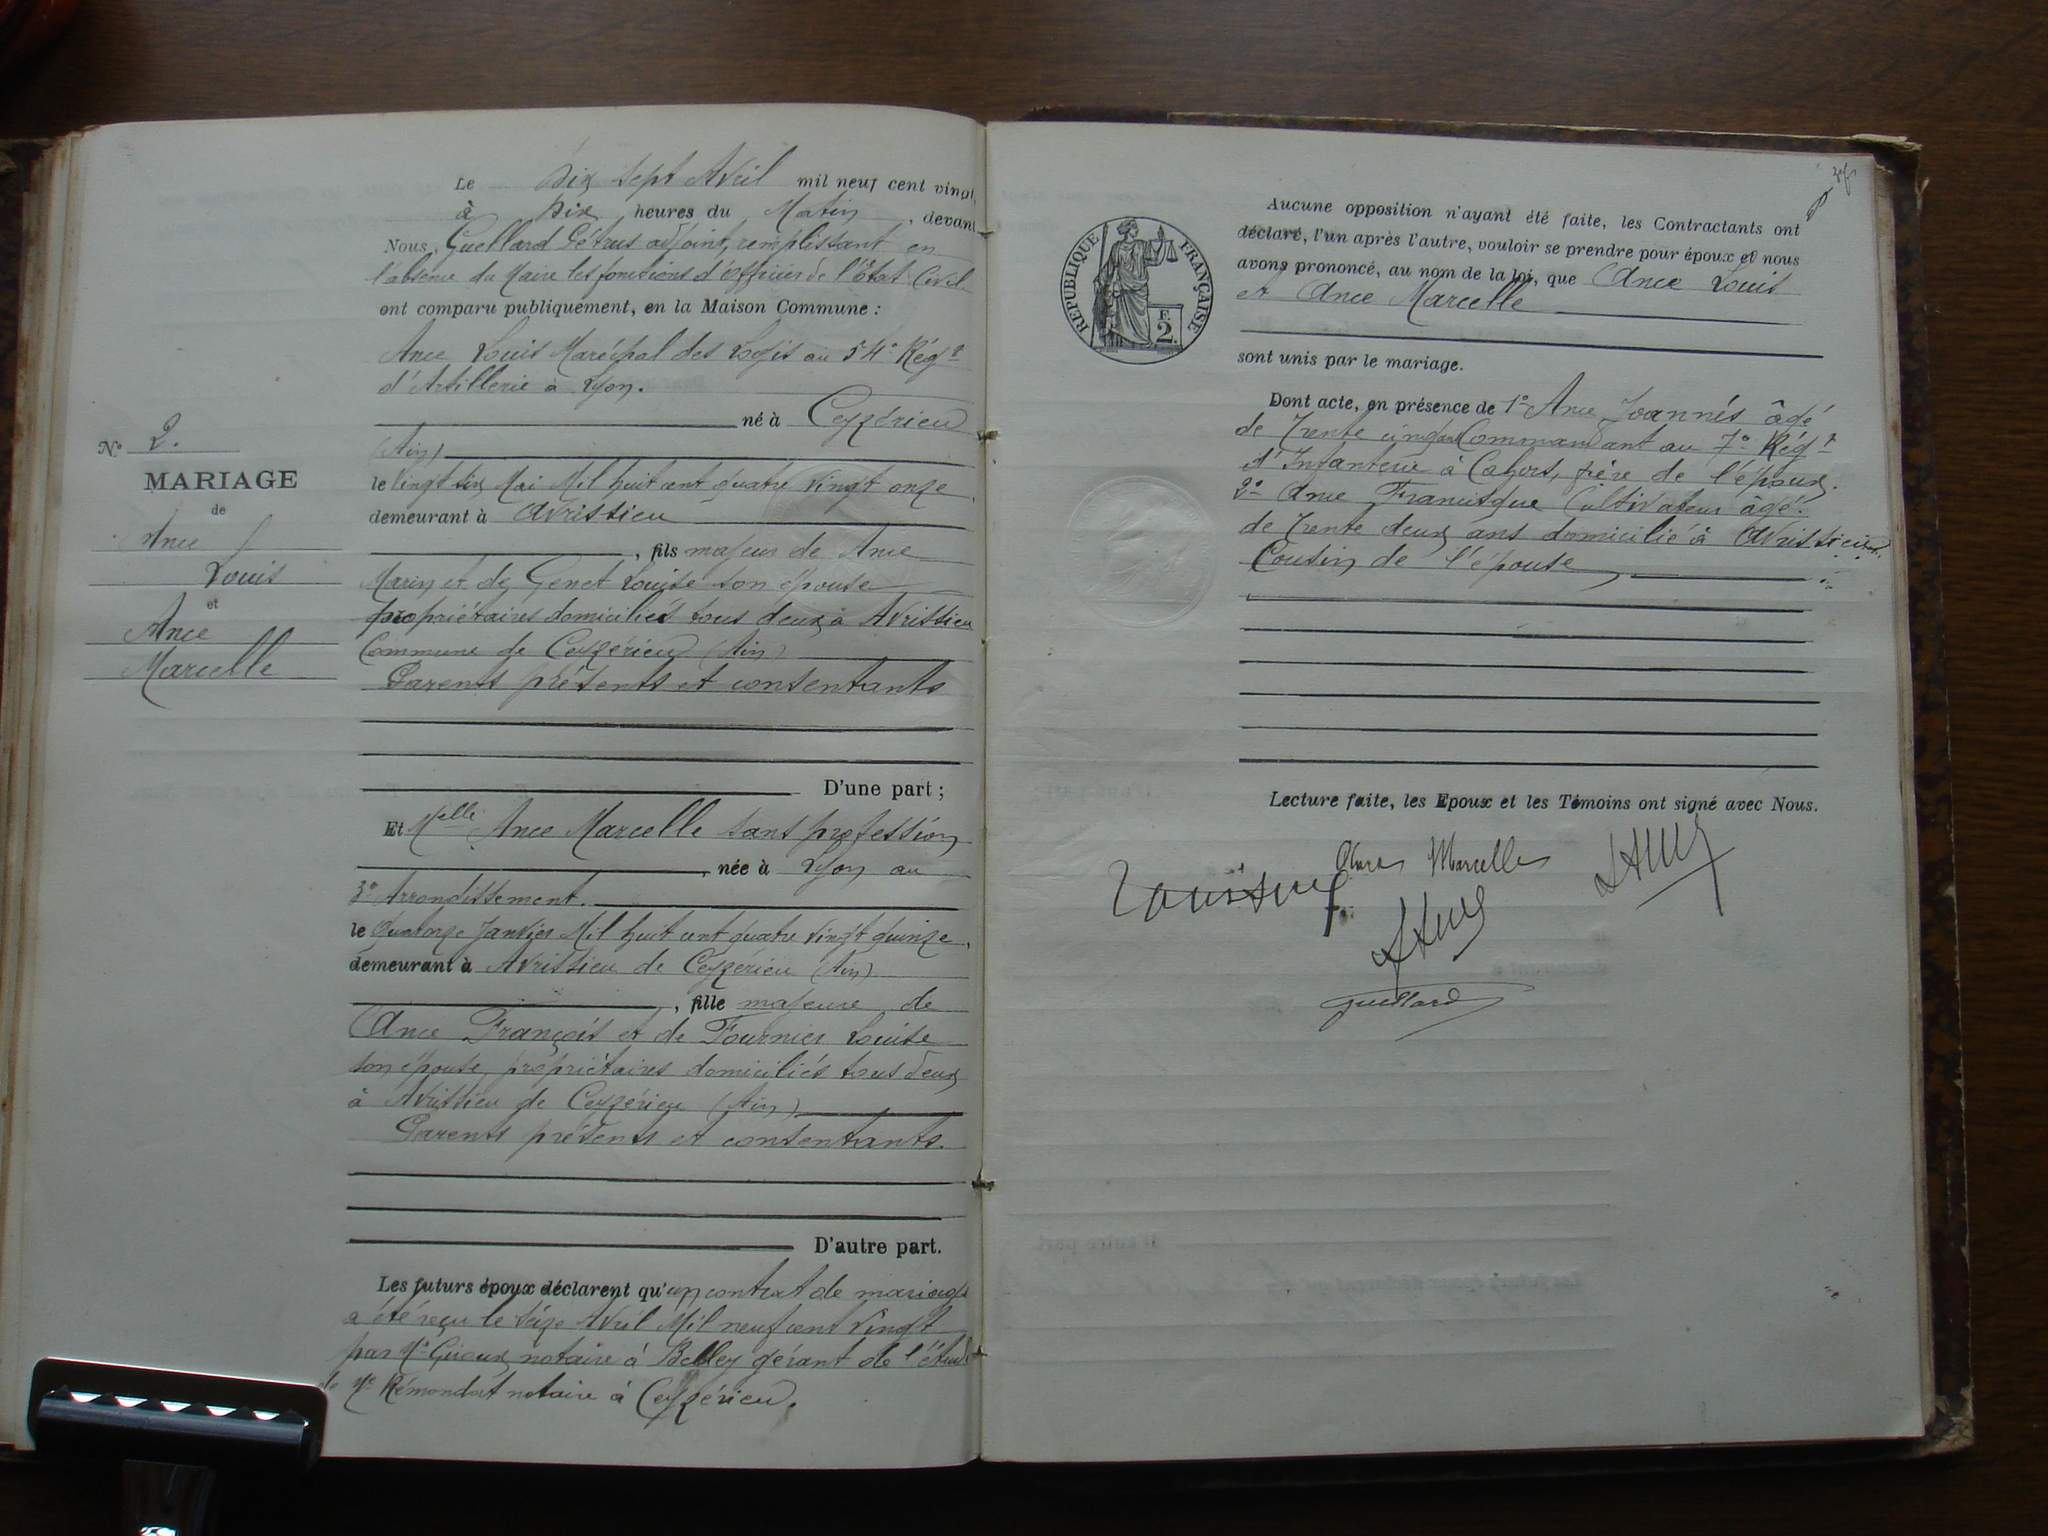 Le Dix sept Avril mil neuf cent vingt,
à Dix heures du Matin, devant
Nous, Guellard Pétrus adjoint, remplissant en
l'absence du Maire les fonctions d'officier de l'État Civil
ont comparu publiquement, en la Maison Commune :
Ance Louis Maréchal des Logis au 54e Régt
d'Artillerie à Lyon.
né à Ceyzérieu
(Ain)
le Vingt six Mai Mil huit cent quatre vingt onze,
demeurant à Avrissieu
, fils majeur de Ance
Marin et de Genet Louise son épouse
propriétaires domiciliés tous deux à Avrissieu
Commune de Ceyzérieu (Ain)
Parents présents et consentants
D'une part ;
Et Melle Ance Marcelle sans profession
, née à Lyon au
3e Arrondissement.
le Quatorze Janvier Mil huit cent quatre vingt quinze,
demeurant à Avrissieu de Ceyzérieu (Ain)
, fille majeure de
Ance François et de Fournier Louise
son épouse, propriétaires domiciliés tous deux
à Avrissieu de Ceyzérieu (Ain)
Parents présents et consentants.
D'autre part.
Les futurs époux déclarent qu'un contrat de mariage
a été reçu le seize Avril Mil neuf cent Vingt
par Me notaire à Belley gérant de l'étude
de Me Rémondat notaire à Ceyzérieu.
No 2.
MARIAGE
de
Ance
Louis
et
Ance
Marcelle
RÉPUBLIQUE FRANÇAISE
F.
2.
Aucune opposition n'ayant été faite, les Contractants ont
déclaré, l'un après l'autre, vouloir se prendre pour époux et nous
avons prononcé, au nom de la loi, que Ance Louis
et Ance Marcelle
sont unis par le mariage.
Dont acte, en présence de 1o Ance Joannés âgé
de Trente cinq ans Commandant au 7e Régt
d'Infanterie à Cahors, frère de l'époux.
2o Ance Francisque Cultivateur âgé
de Trente deux ans domicilié à Avrissieu.
Cousin de l'épouse
Lecture faite, les Epoux et les Témoins ont signé avec Nous.
Louis Ance
Ance Marcelle
Guellard